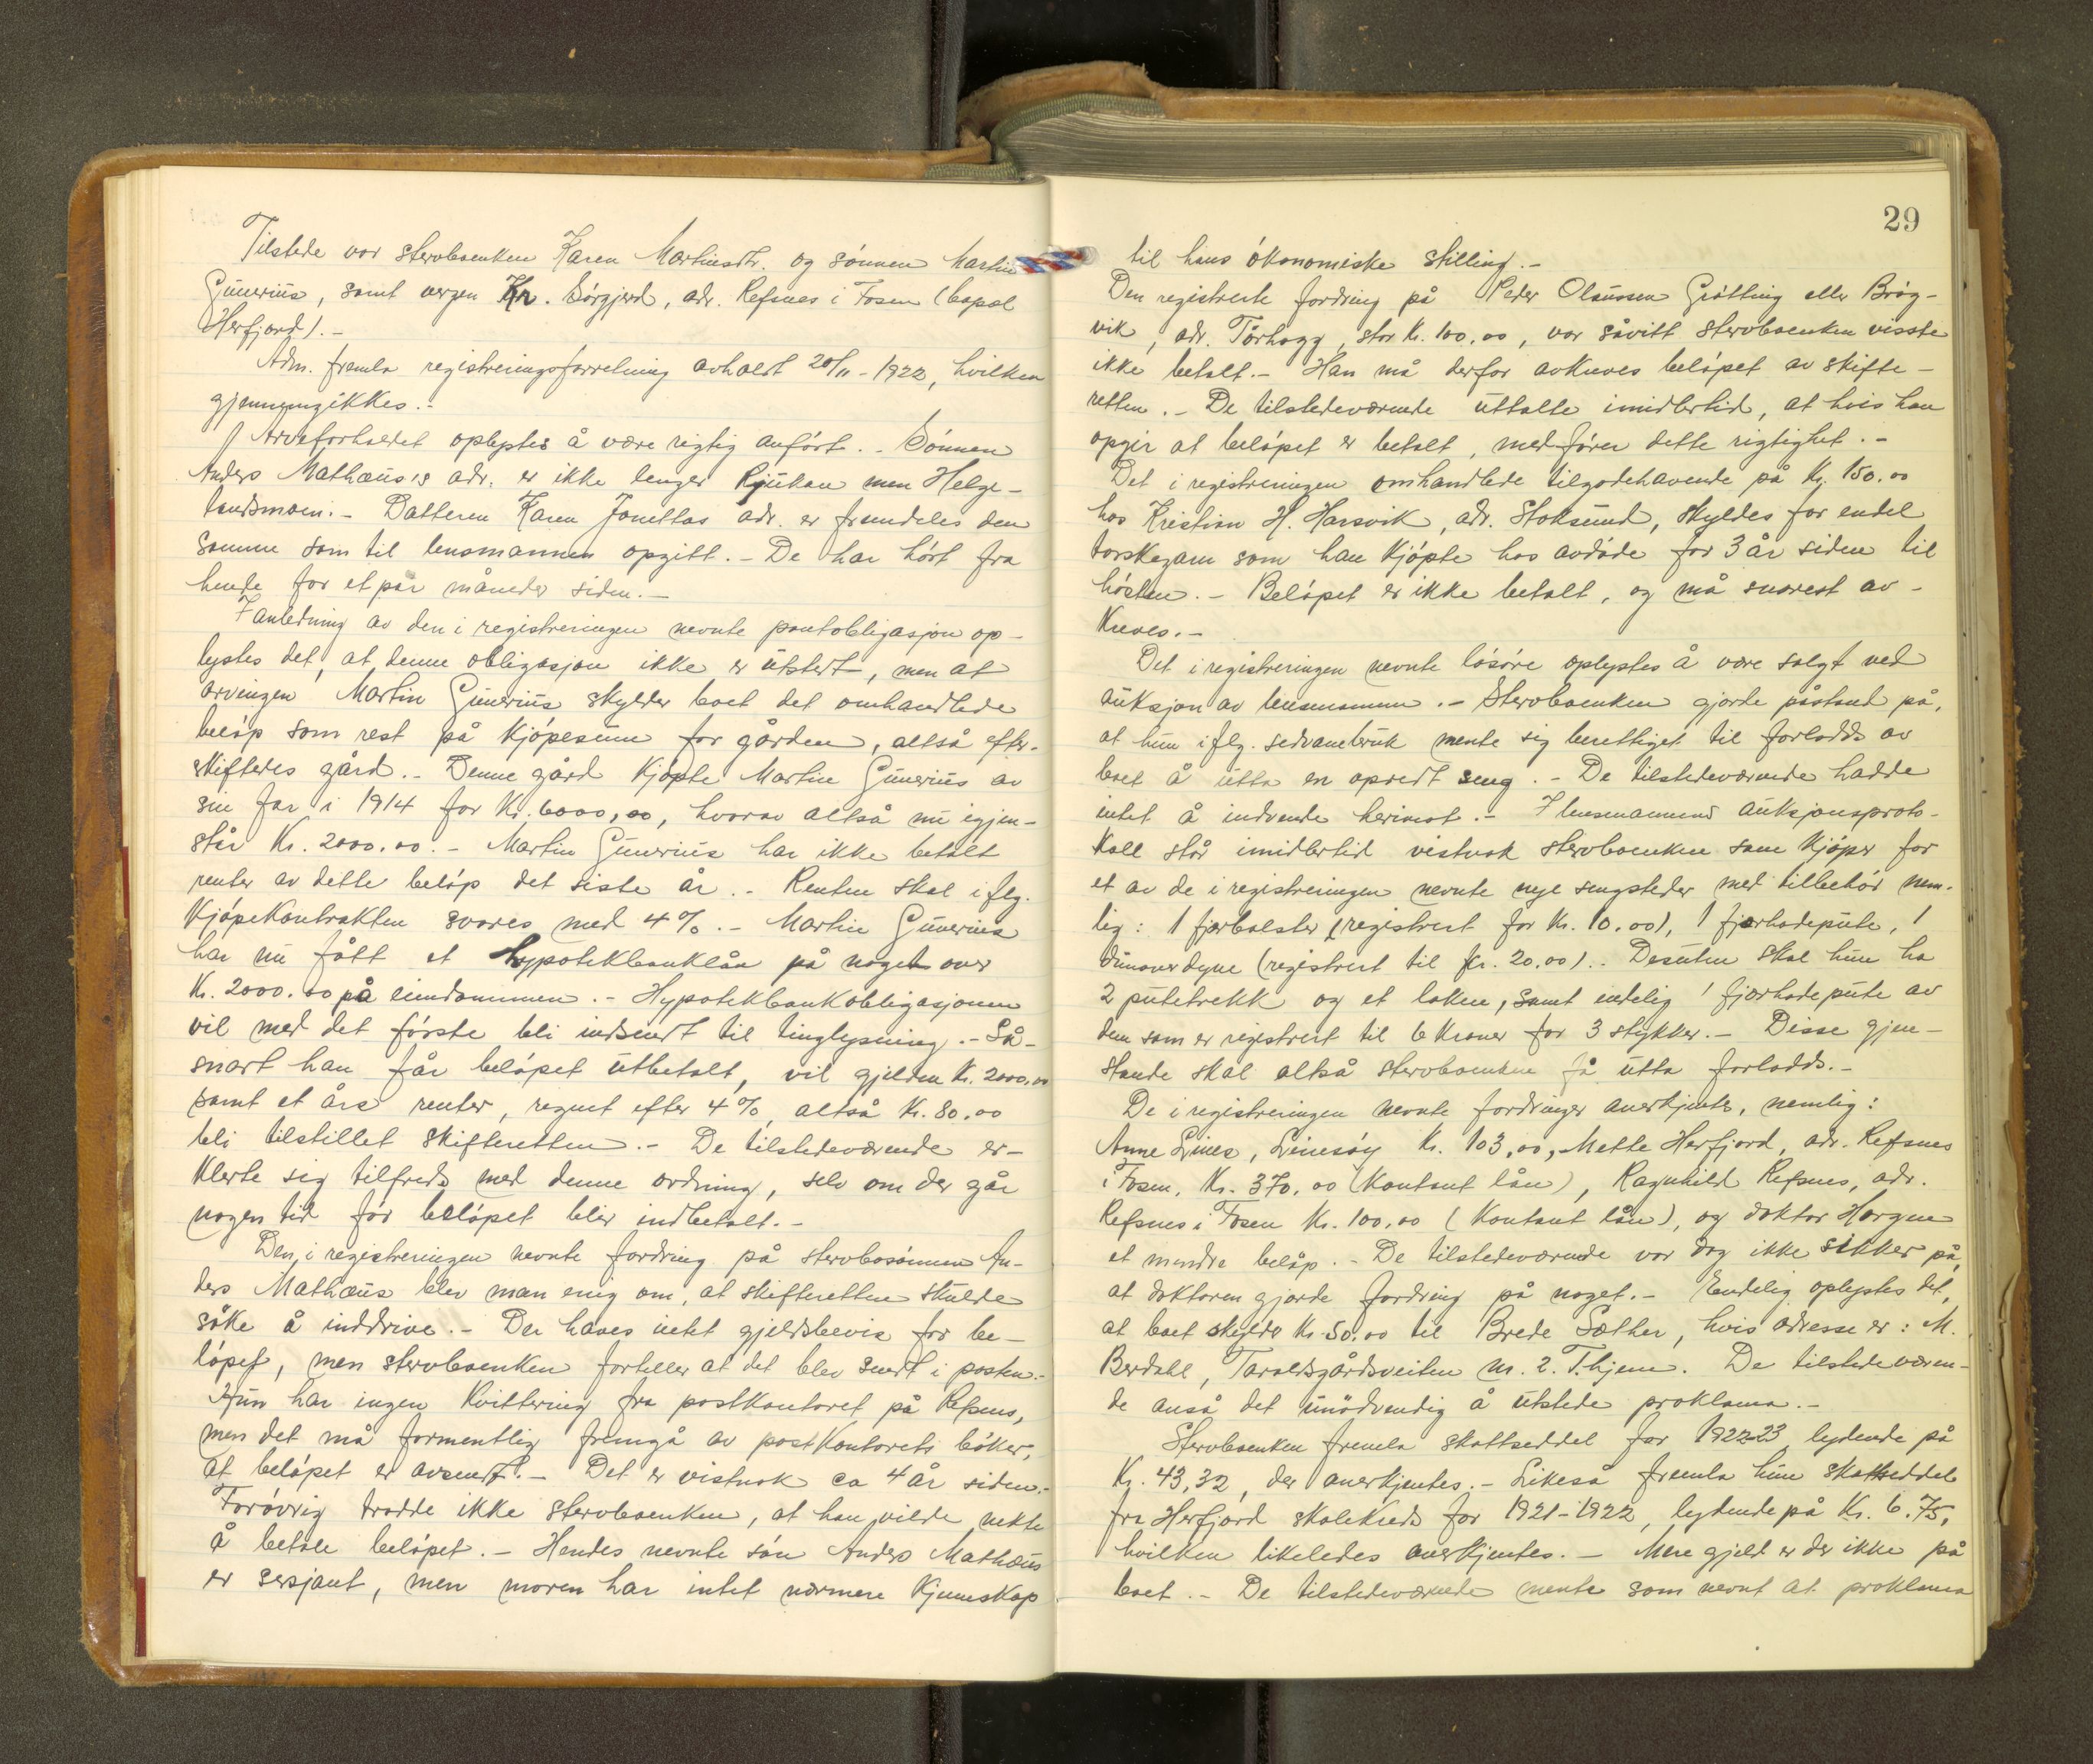 Tilstede var stervboenken Karen Martinsdtr. og sønnen Martin
Gunerius, samt vergen Kr. Sørgjerd, adr. Refsnes i Fosen (bopæl
Herfjord).-
Adm. fremla registreringsforretning avholdt 20/11-1922, hvilken
gjennemgikkes.-
Arveforholdet oplystes å være rigtig anført.- Sønnen
Anders Mathæus's adr. er ikke lenger Rjukan men Helge-
landsmoen.- Datteren Karen Jonettas adr. er fremdeles den
samme som til lensmannen opgitt.- De har hørt fra
hende for et par måneder siden.-
I anledning av den i registreringen nevnte pantobligasjon op-
lystes det, at denne obligasjon ikke er utstedt, men at
arvingen Martin Gunerius skylder boet det omhandlede
beløp som rest på kjøpesum for gården, altså efter-
skiftedes gård.- Denne gård kjøpte Martin Gunerius av
sin far i 1914 for Kr. 6000,00, hvorav altså nu igjen-
står Kr. 2000.00.- Martin Gunerius har ikke betalt
renter av dette beløp det siste år.- Renten skal iflg.
kjøpekontrakten svares med 4%.- Martin Gunerius
har nu fått et hypotekbanklån på noget over
Kr. 2000.00 på eiendommen.- Hypotekbankobligasjonen
vil med det første bli indsendt til tinglysning.- Så-
snart han får beløpet utbetalt, vil gjelden Kr. 2000,00
samt et års renter, regnet efter 4%, altså Kr. 80.00
bli tilstillet skifteretten.- De tilstedeværende er-
klerte sig tilfreds med denne ordning, selv om der går
nogen tid før beløpet blir indbetalt.-
Den i registreringen nevnte fordring på stervbosønnen An-
ders Mathæus blev man enig om, at skifteretten skulde
søke å inddrive.- Der haves intet gjeldsbevis for be-
løpet, men stervboenken forteller at det blev sendt i posten.-
Hun har ingen kvittering fra postkontoret på Refsnes,
men det må formentlig fremgå av postkontorets bøker,
at beløpet er avsendt.- Det er vistnok ca 4 år siden.-
Forøvrig trodde ikke stervboenken, at han vilde nekte
å betale beløpet.- Hendes nevnte søn Anders Mathæus
er sersjant, men moren har intet nærmere kjennskap
29
til hans økonomiske stilling.-
Den registrerte fordring på Peder Olaussen Grøtting eller Brøg-
vik, adr. Tårhogg, stor Kr. 100.00, var såvitt stervboenken visste
ikke betalt.- Han må derfor avkreves beløpet av skifte-
retten.- De tilstedeværende uttalte imidlertid, at hvis han
opgir at beløpet er betalt, medfører dette rigtighet.-
Det i registreringen omhandlede tilgodehavende på Kr. 150.00
hos Kristian H. Harsvik, adr. Stoksund, skyldes for endel
torskegarn som han kjøpte hos avdøde for 3 år siden til
høsten.- Beløpet er ikke betalt, og må snarest av-
kreves.-
Det i registreringen nevnte løsøre oplystes å være solgt ved
auksjon av lensmannen.- Stervboenken gjorde påstand på,
at hun iflg. sedvanebruk mente sig berettiget til forlodds av
boet å utta en opredt seng.- De tilstedeværende hadde
intet å indvende herimot.- I lensmannens auksjonsproto-
koll står imidlertid vistnok stervboenken som kjøper for
et av de i registreringen nevnte nye sengsteder med tilbehør nem-
lig: 1 fjærbolster (registrert for Kr. 10.00), 1 fjærhodepute, 1
dunoverdyne (registrert til Kr. 20.00).. Desuten skal hun ha
2 putetrekk og et laken, samt endelig 1 fjærhodepute av
dem som er registrert til 6 kroner for 3 stykker.- Disse gjen-
stande skal altså stervboenken få utta forlodds.-
De i registreringen nevnte fordringer anerkjentes, nemlig:
Anne Lines, Linesøy Kr. 103,00, Mette Herfjord, adr. Refsnes
i Fosen, Kr. 370.00 (kontant lån), Ragnhild Refsnes, adr.
Refsnes i Fosen Kr. 100.00 (kontant lån), og doktor Horgen
et mindre beløp.- De tilstedeværende var dog ikke sikker på,
at doktoren gjorde fordring på noget.- Endelig oplystes det,
at boet skylder Kr. 50.00 til Brede Sæther, hvis adresse er: M.
Berdahl, Taraldsgårdsveiten nr. 2. T.hjem. De tilstedeværen-
de anså det unødvendig å utstede proklama.-
Stervboenken fremla skattseddel for 1922-23 lydende på
Kr. 43,32, der anerkjentes.- Likeså fremla hun skattseddel
fra Herfjord skolekreds for 1921-1922, lydende på Kr. 6.75,
hvilken likeledes anerkjentes.- Mere gjeld er der ikke på
boet.- De tilstedeværende mente som nevnt at proklama